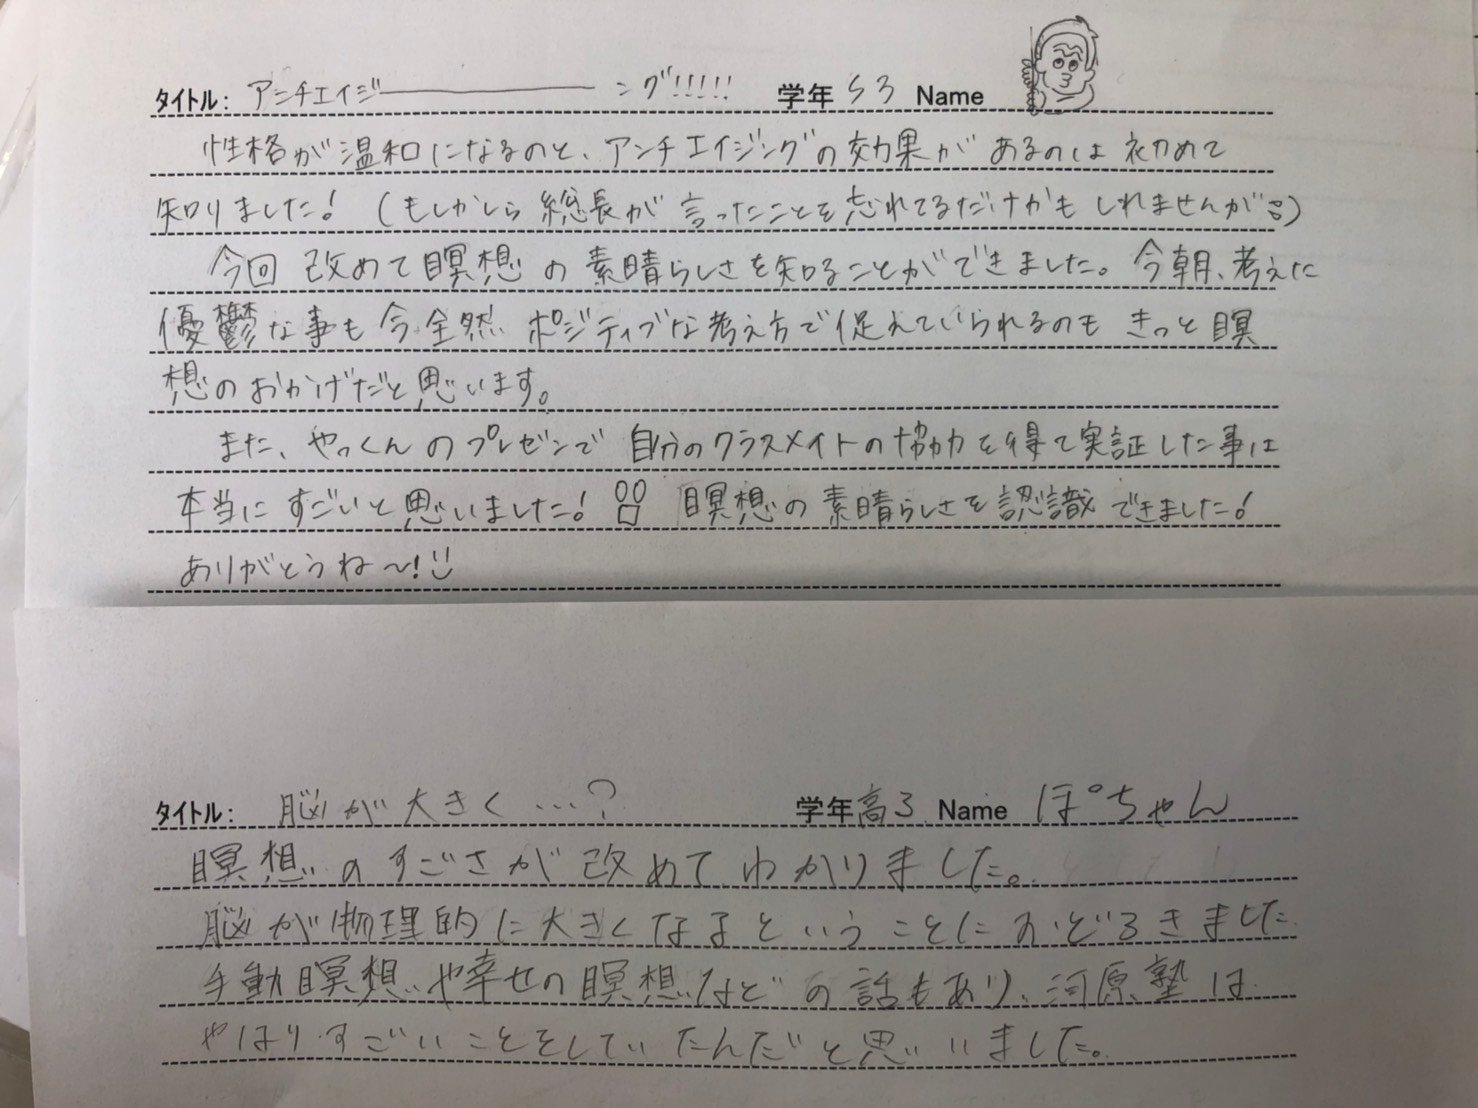 タイトル: アンチエイジ―――――ング!!!!! 学年 S3 Name
性格が温和になるのと、アンチエイジングの効果があるのは初めて
知りました！(もしかしら総長が言ったことを忘れてるだけかもしれませんが)
今回改めて瞑想の素晴らしさを知ることができました。今朝、考えた
優鬱な事も今全然ポジティブな考え方で促えていられるのもきっと瞑
想のおかげだと思います。
また、やっくんのプレゼンで自分のクラスメイトの協力を得て実証した事は
本当にすごいと思いました！瞑想の素晴らしさを認識できました！
ありがとうね〜!
タイトル: 脳が大きく…? 学年 高3 Name ぽちゃん
瞑想のすごさが改めてわかりました。
脳が物理的に大きくなるということにおどろきました
手動瞑想や幸せの瞑想などの話もあり、河原塾は
やはりすごいことをしていたんだと思いました。